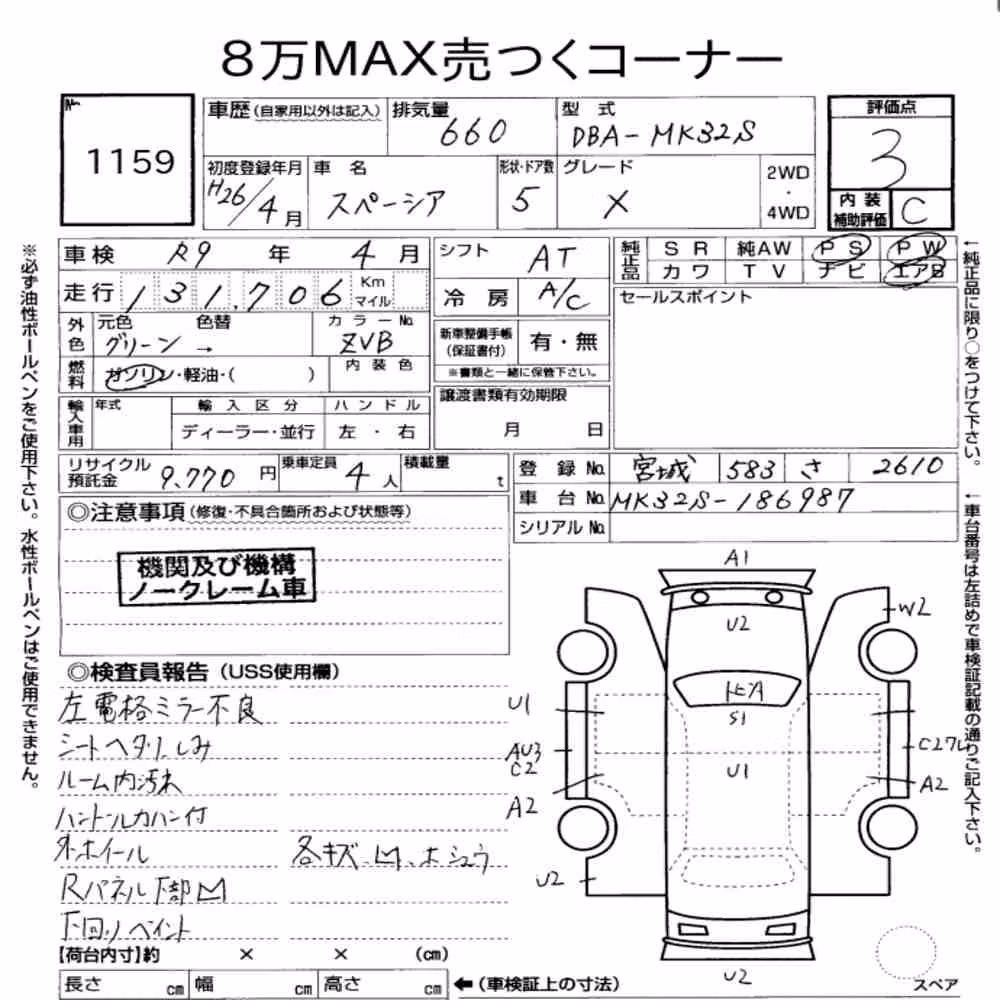 8万MAX売つくコーナー
No. 1159
車歴(自家用以外は記入) 排気量 660 型式 DBA-MK32S 評価点 3
初度登録年月 H26/4月 車名 スペーシア 形状・ドア数 5 グレード X 2WD・4WD 内装補助評価 C
車検 R9年 4月 シフト AT 純正品 SR 純AW PS PW
カワ TV ナビ エアB
走行 131,706 Km マイル 冷房 A/C セールスポイント
外色 元色 グリーン → 色替 カラーNo. ZVB 新車整備手帳(保証書付) 有・無
燃料 ガソリン・軽油・( ) 内装色 ※書類と一緒に保管下さい。
輸入車用 年式 輸入区分 ハンドル 譲渡書類有効期限
ディーラー・並行 左・右 月 日
リサイクル預託金 9,770円 乗車定員 4人 積載量 t 登録No. 宮城 583 さ 2610
車台No. MK32S-186987
シリアルNo.
◎注意事項(修復・不具合箇所および状態等)
機関及び機構
ノークレーム車
◎検査員報告(USS使用欄)
左電格ミラー不良
シートヘタリ、しみ
ルーム内汚れ
ハンドルカバー付
外ホイール
各キズ、凹、ホシュウ
Rパネル下部凹
下回りペイント
【荷台内寸】約 × × (cm)
長さ cm 幅 cm 高さ cm ←(車検証上の寸法)
A1
U2
W2
トビA
S1
U1
U1
AU3
C2
C27L
A2
A2
U2
U2
スペア
※必ず油性ボールペンをご使用下さい。水性ボールペンはご使用できません。
←純正品に限り○をつけて下さい。
←車台番号は左詰めで車検証記載の通りご記入下さい。